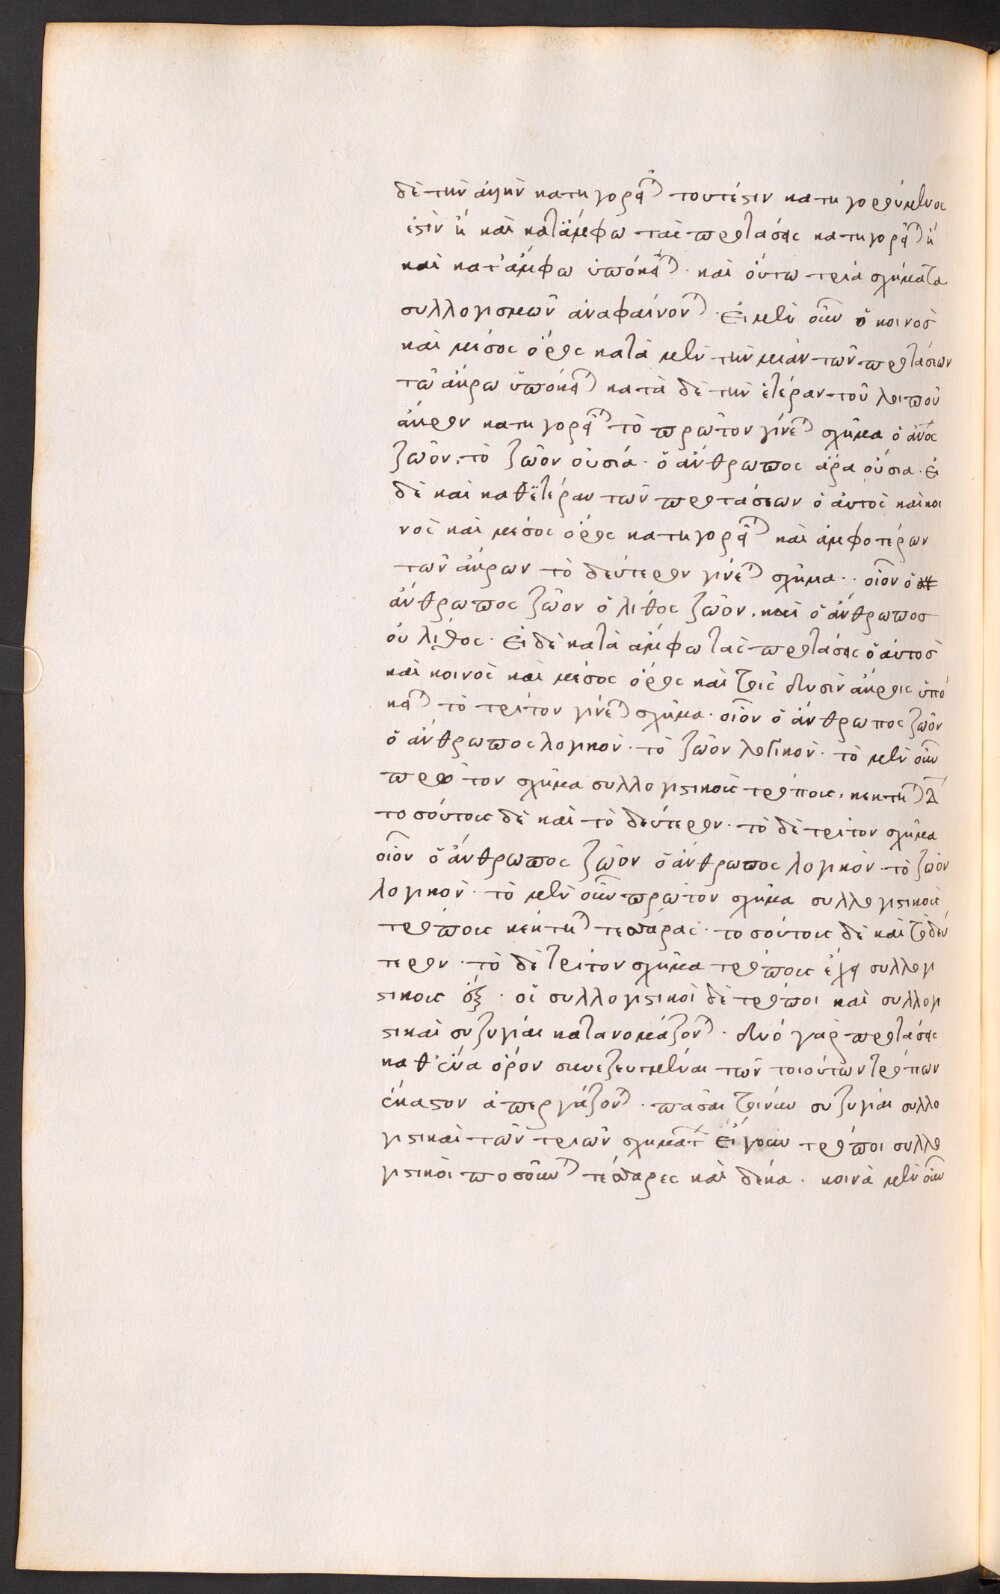 δὲ τὴν ἀρχὴν κατηγορεῖται τουτέστιν κατηγορούμενος
ἐστὶν ἢ καὶ κατάμφω τὰς προτάσεις κατηγορεῖται ἢ
καὶ κατ' ἄμφω ὑπόκειται· καὶ οὕτω τρία σχήματα
συλλογισμῶν ἀναφαίνονται· Εἰ μὲν οὖν ὁ κοινὸς
καὶ μέσος ὅρος κατὰ μὲν τὴν μίαν τῶν προτάσεων
τῶ ἄκρω ὑπόκειται κατὰ δὲ τὴν ἑτέραν τοῦ λοιποῦ
ἄκρου κατηγορεῖται τὸ πρῶτον γίνεται σχῆμα ὁ ἄνος
ζῶον· τὸ ζῶον οὐσία· ὁ ἄνθρωπος ἄρα οὐσία· εἰ
δὲ καὶ καθ' ἑτέραν τῶν προτάσεων ὁ αὐτὸς καὶ κοι
νὸς καὶ μέσος ὅρος κατηγορεῖται καὶ ἀμφοτέρων
τῶν ἄκρων τὸ δεύτερον γίνεται σχῆμα·· οἷον ὁ
ἄνθρωπος ζῶον ὁ λίθος ζῶον· καὶ ὁ ἄνθρωπος
οὐ λίθος· Εἰ δὲ κατὰ ἄμφω τὰς προτάσεις ὁ αὐτὸς
καὶ κοινὸς καὶ μέσος ὅρος καὶ τοῖς δυσὶν ἄκροις ὑπό
κειται τὸ τρίτον γίνεται σχῆμα· οἷον ὁ ἄνθρωπος ζῶον
ὁ ἄνθρωπος λογικὸν· τὸ ζῶον λογικὸν· τὸ μὲν οὖν
πρῶτον σχῆμα συλλογιστικοὺς τρόπους· κέκτηται Δ
τοσούτους δὲ καὶ τὸ δεύτερον· τὸ δὲ τρίτον σχῆμα
οἷον ὁ ἄνθρωπος ζῶον ὁ ἄνθρωπος λογικὸν· τὸ ζῶον
λογικὸν· τὸ μὲν οὖν πρῶτον σχῆμα συλλογιστικοὺς
τρόπους κέκτηται τέσσαρας· τοσούτους δὲ καὶ τὸ δεύ
τερον· τὸ δὲ τρίτον σχῆμα τρόπους ἔχει συλλογι
στικους ὅξ· οἱ συλλογιστικοὶ δὲ τρόποι καὶ συλλογι
στικαὶ συζυγίαι κατανομάζονται· δυό γὰρ προτάσεις
καθ' ἕνα ὅρον συνεζευγμέναι τῶν τοιούτων τρόπων
ἕκαστον ἀπεργάζονται· πᾶσαι τοίνυν συζυγίαι συλλο
γιστικαὶ τῶν τριῶν σχημάτων εἴγουν τρόποι συλλο
γιστικοὶ ποσοῦνται τέσσαρες καὶ δέκα· κοινὰ μὲν οὖν